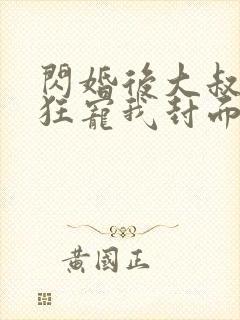 閃婚後大叔
狂寵我封面
黃國正